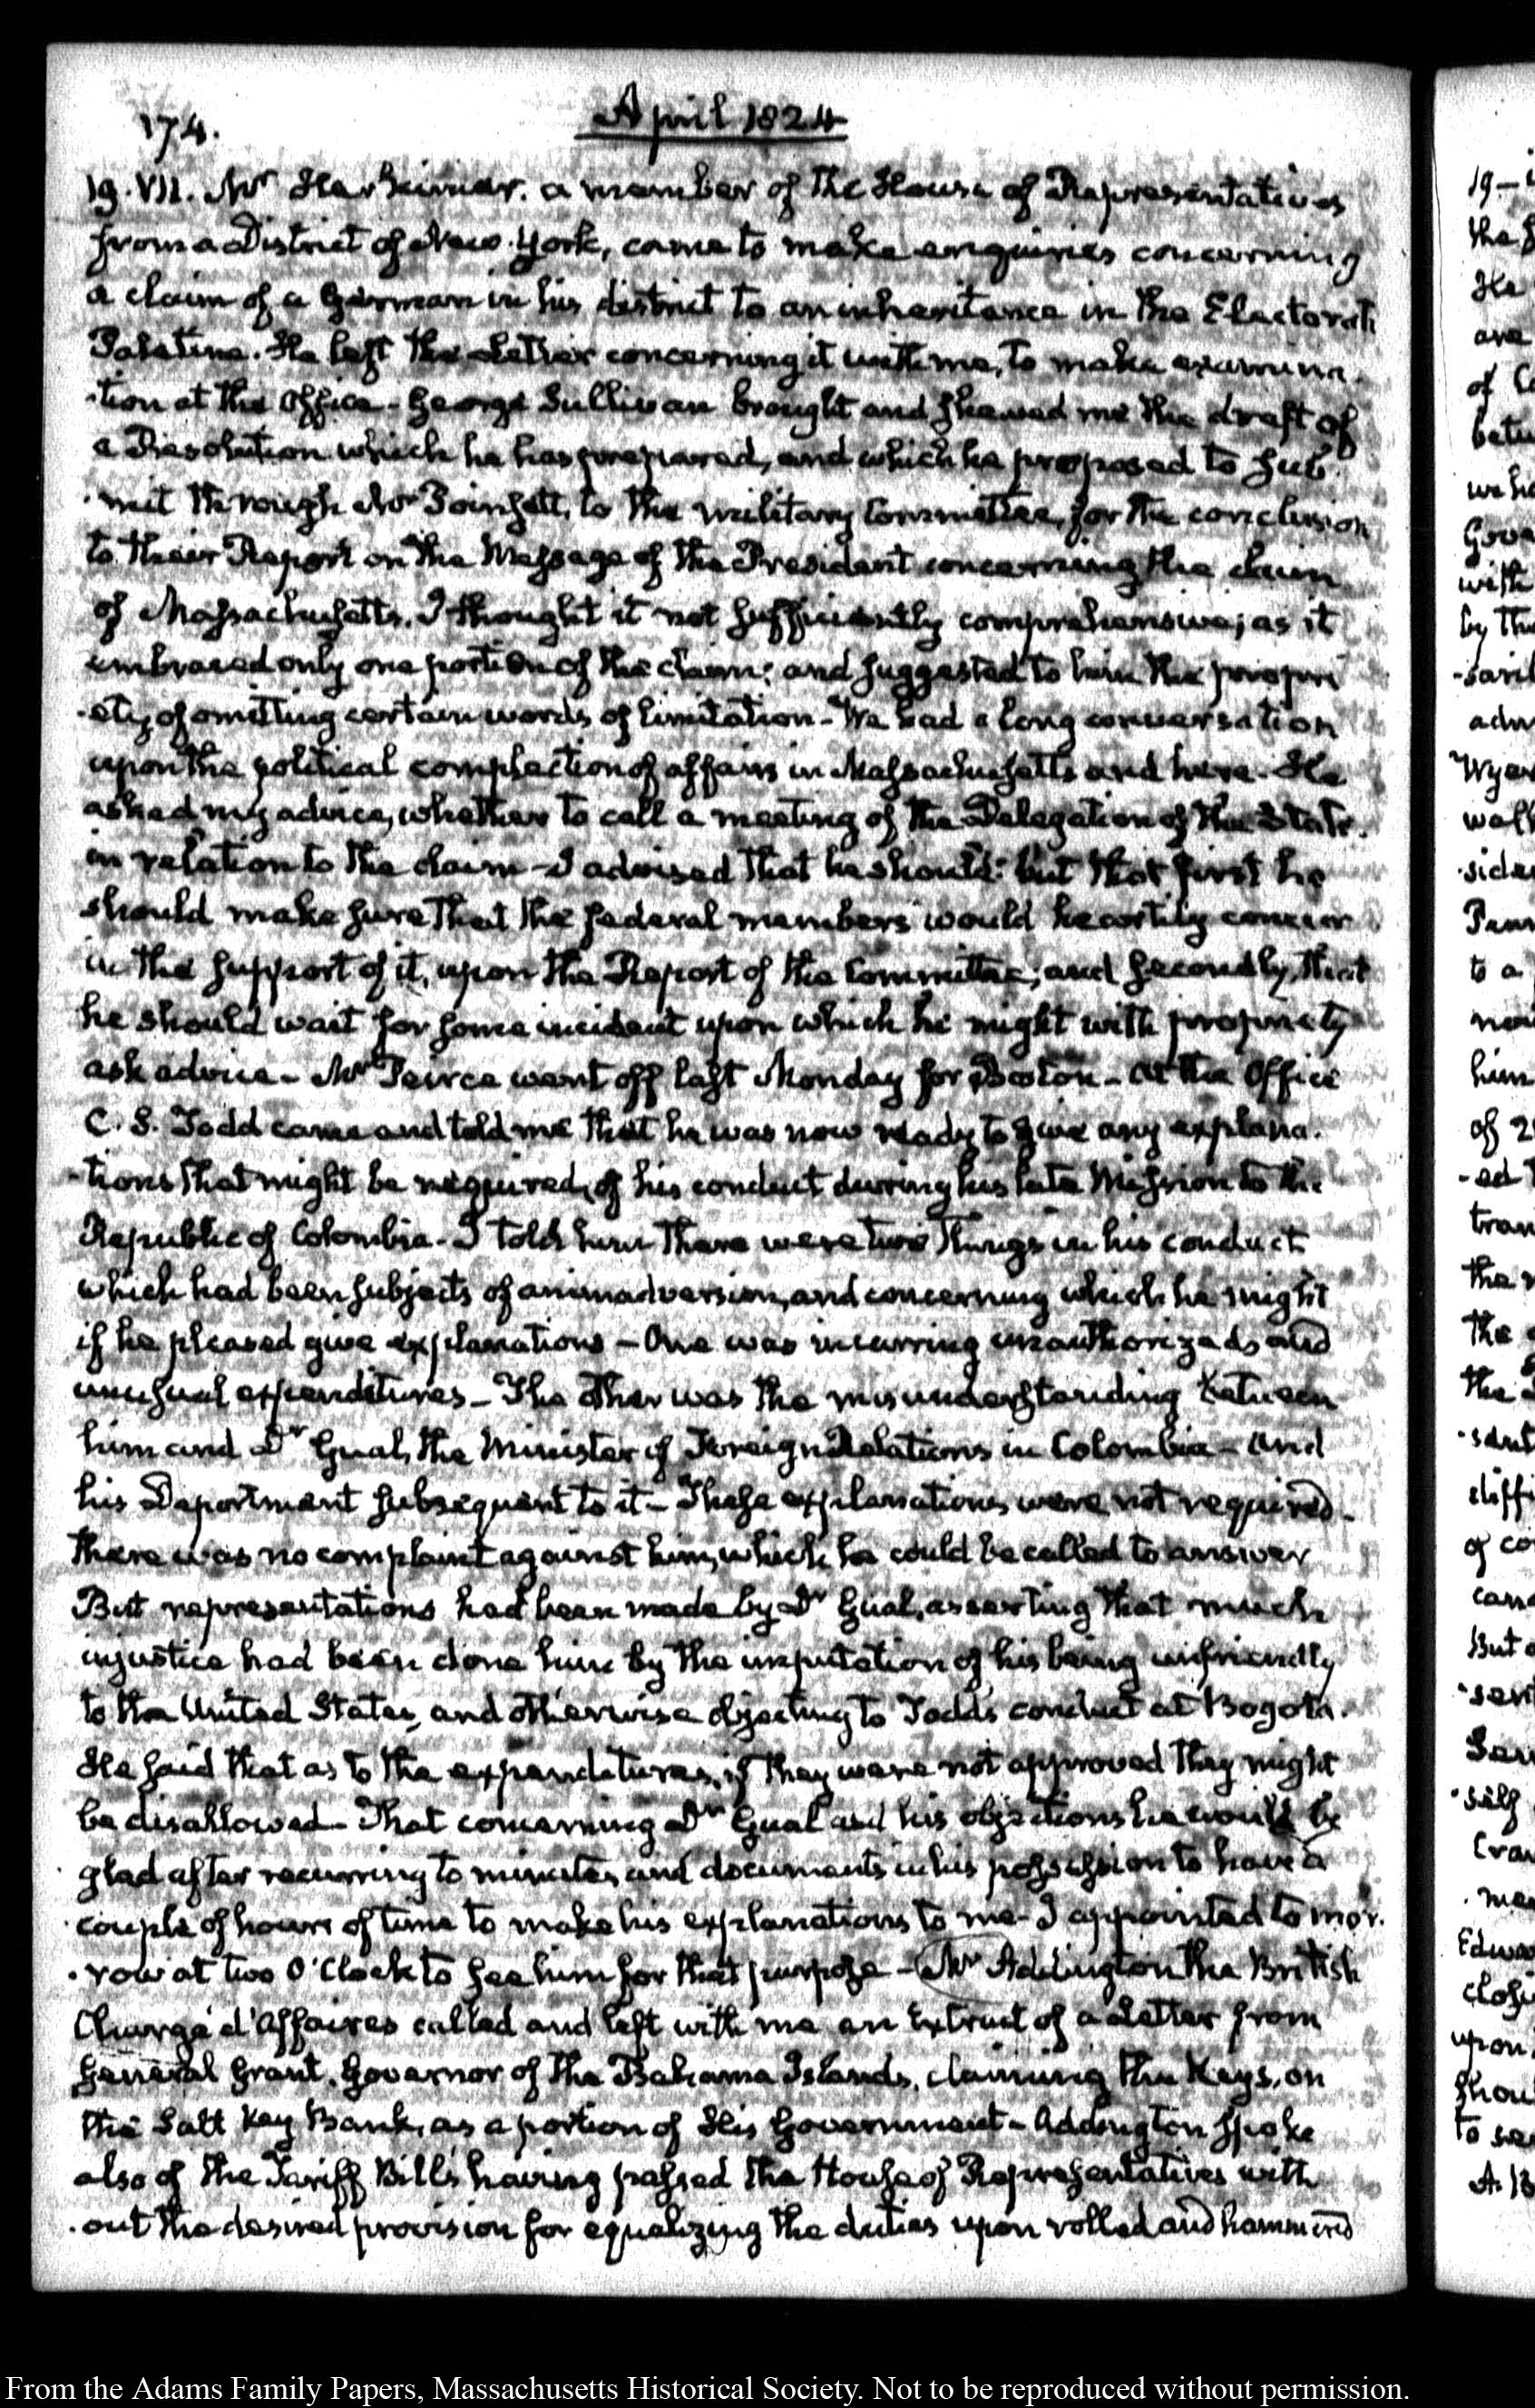 174.
April 1824
19. VII. Mr Herkimer. a member of the House of Representatives
from a District of New-York, came to make enquiries concerning
a claim of a German in his district to an inheritance in the Electorate
Palatine. He left the Letter concerning it with me, to make examina-
-tion at the Office - George Sullivan brought and shewed me the draft of
a Resolution which he has prepared, and which he proposed to sub-
-mit through Mr Poinsett, to the military Committee, for the conclusion
to their Report on the Message of the President concerning the claim
of Massachusetts. I thought it not sufficiently comprehensive; as it
embraced only one portion of the claim: and suggested to him the propri
-ety of omitting certain words of limitation - We had a long conversation
upon the political complection of affairs in Massachusetts and here. He
asked my advice, whether to call a meeting of the Delegation of the State.
in relation to the claim - I advised that he should: but that first he
should make sure that the federal members would heartily concur
in the support of it, upon the Report of the Committee; and secondly, that
he should wait for some incident upon which he might with propriety
ask advice - Mr Peirce went off last Monday for Boston - At the Office
C. S. Todd came and told me that he was now ready to give any explana-
-tions that might be required, of his conduct during his late Mission to the
Republic of Colombia - I told him there were two things in his conduct
which had been subjects of animadversion, and concerning which he might
if he pleased give explanations - One was incurring unauthorized and
unusual expenditures - The other was the misunderstanding between
him and Dr Gual, the Minister of Foreign Relations in Colombia - and
his Deportment subsequent to it - These explanations were not required -
there was no complaint against him, which he could be called to answer
But representations had been made by Dr Gual, asserting that much
injustice had been done him by the imputation of his being unfriendly
to the United States, and otherwise objecting to Todd's conduct at Bogota.
He said that as to the expenditures, if they were not approved they might
be disallowed - That concerning Dr Gual and his objections he would be
glad after recurring to minutes and documents in his possession to have a
couple of hours of time to make his explanations to me - I appointed to mor-
-row at two O'Clock to see him for that purpose - Mr Addington the British
Chargé d'Affaires called and left with me an Extract of a Letter from
General Grant, Governor of the Bahama Islands, claiming the Keys, on
the Salt Key Bank, as a portion of His Government - Addington spoke
also of the Tariff Bill's having passed the House of Representatives with
-out the desired provision for equalizing the duties upon rolled and hammered
19 -
the
He
are
of
we
with
by
adv
to a
him
of
the
the
the
of
But
upon
to
From the Adams Family Papers, Massachusetts Historical Society. Not to be reproduced without permission.